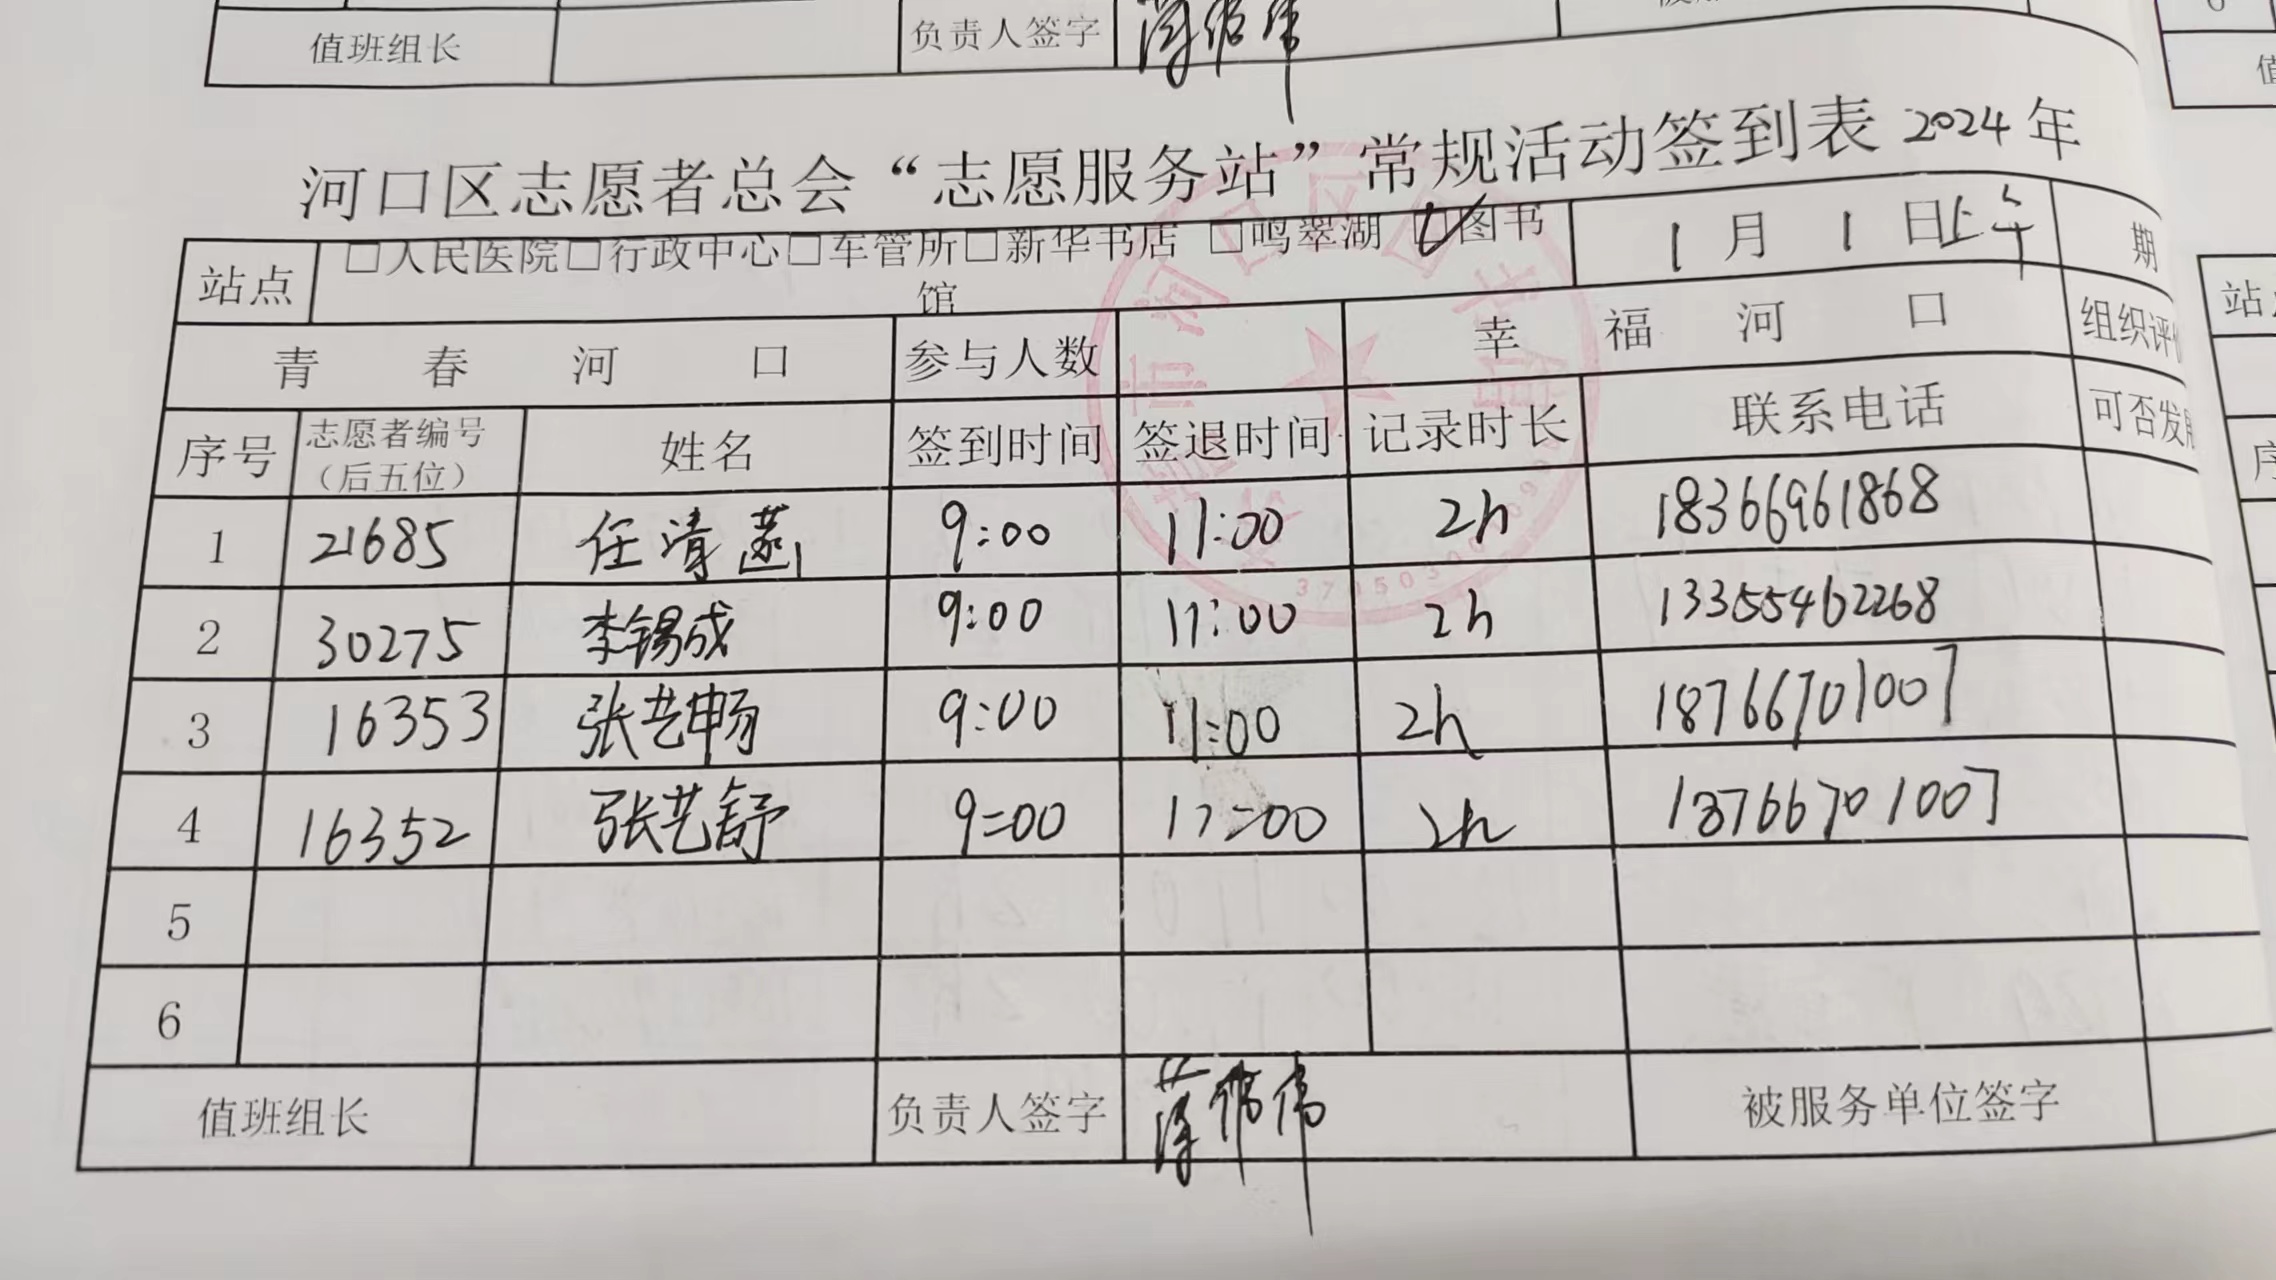 值班组长 负责人签字
河口区志愿者总会“志愿服务站”常规活动签到表 2024年
站点 □人民医院□行政中心□车管所□新华书店 □鸣翠湖 ☑图书馆 1月1日上午 期
青春河口 参与人数 幸福河口 组织评价
序号 志愿者编号（后五位） 姓名 签到时间 签退时间 记录时长 联系电话 可否发
1 21685 任清燕 9:00 11:00 2h 18366961868
2 30275 李锡成 9:00 11:00 2h 13355462268
3 16353 张艺畅 9:00 11:00 2h 18766701007
4 16352 张艺舒 9:00 11:00 2h 18766701007
5
6
值班组长 负责人签字 被服务单位签字